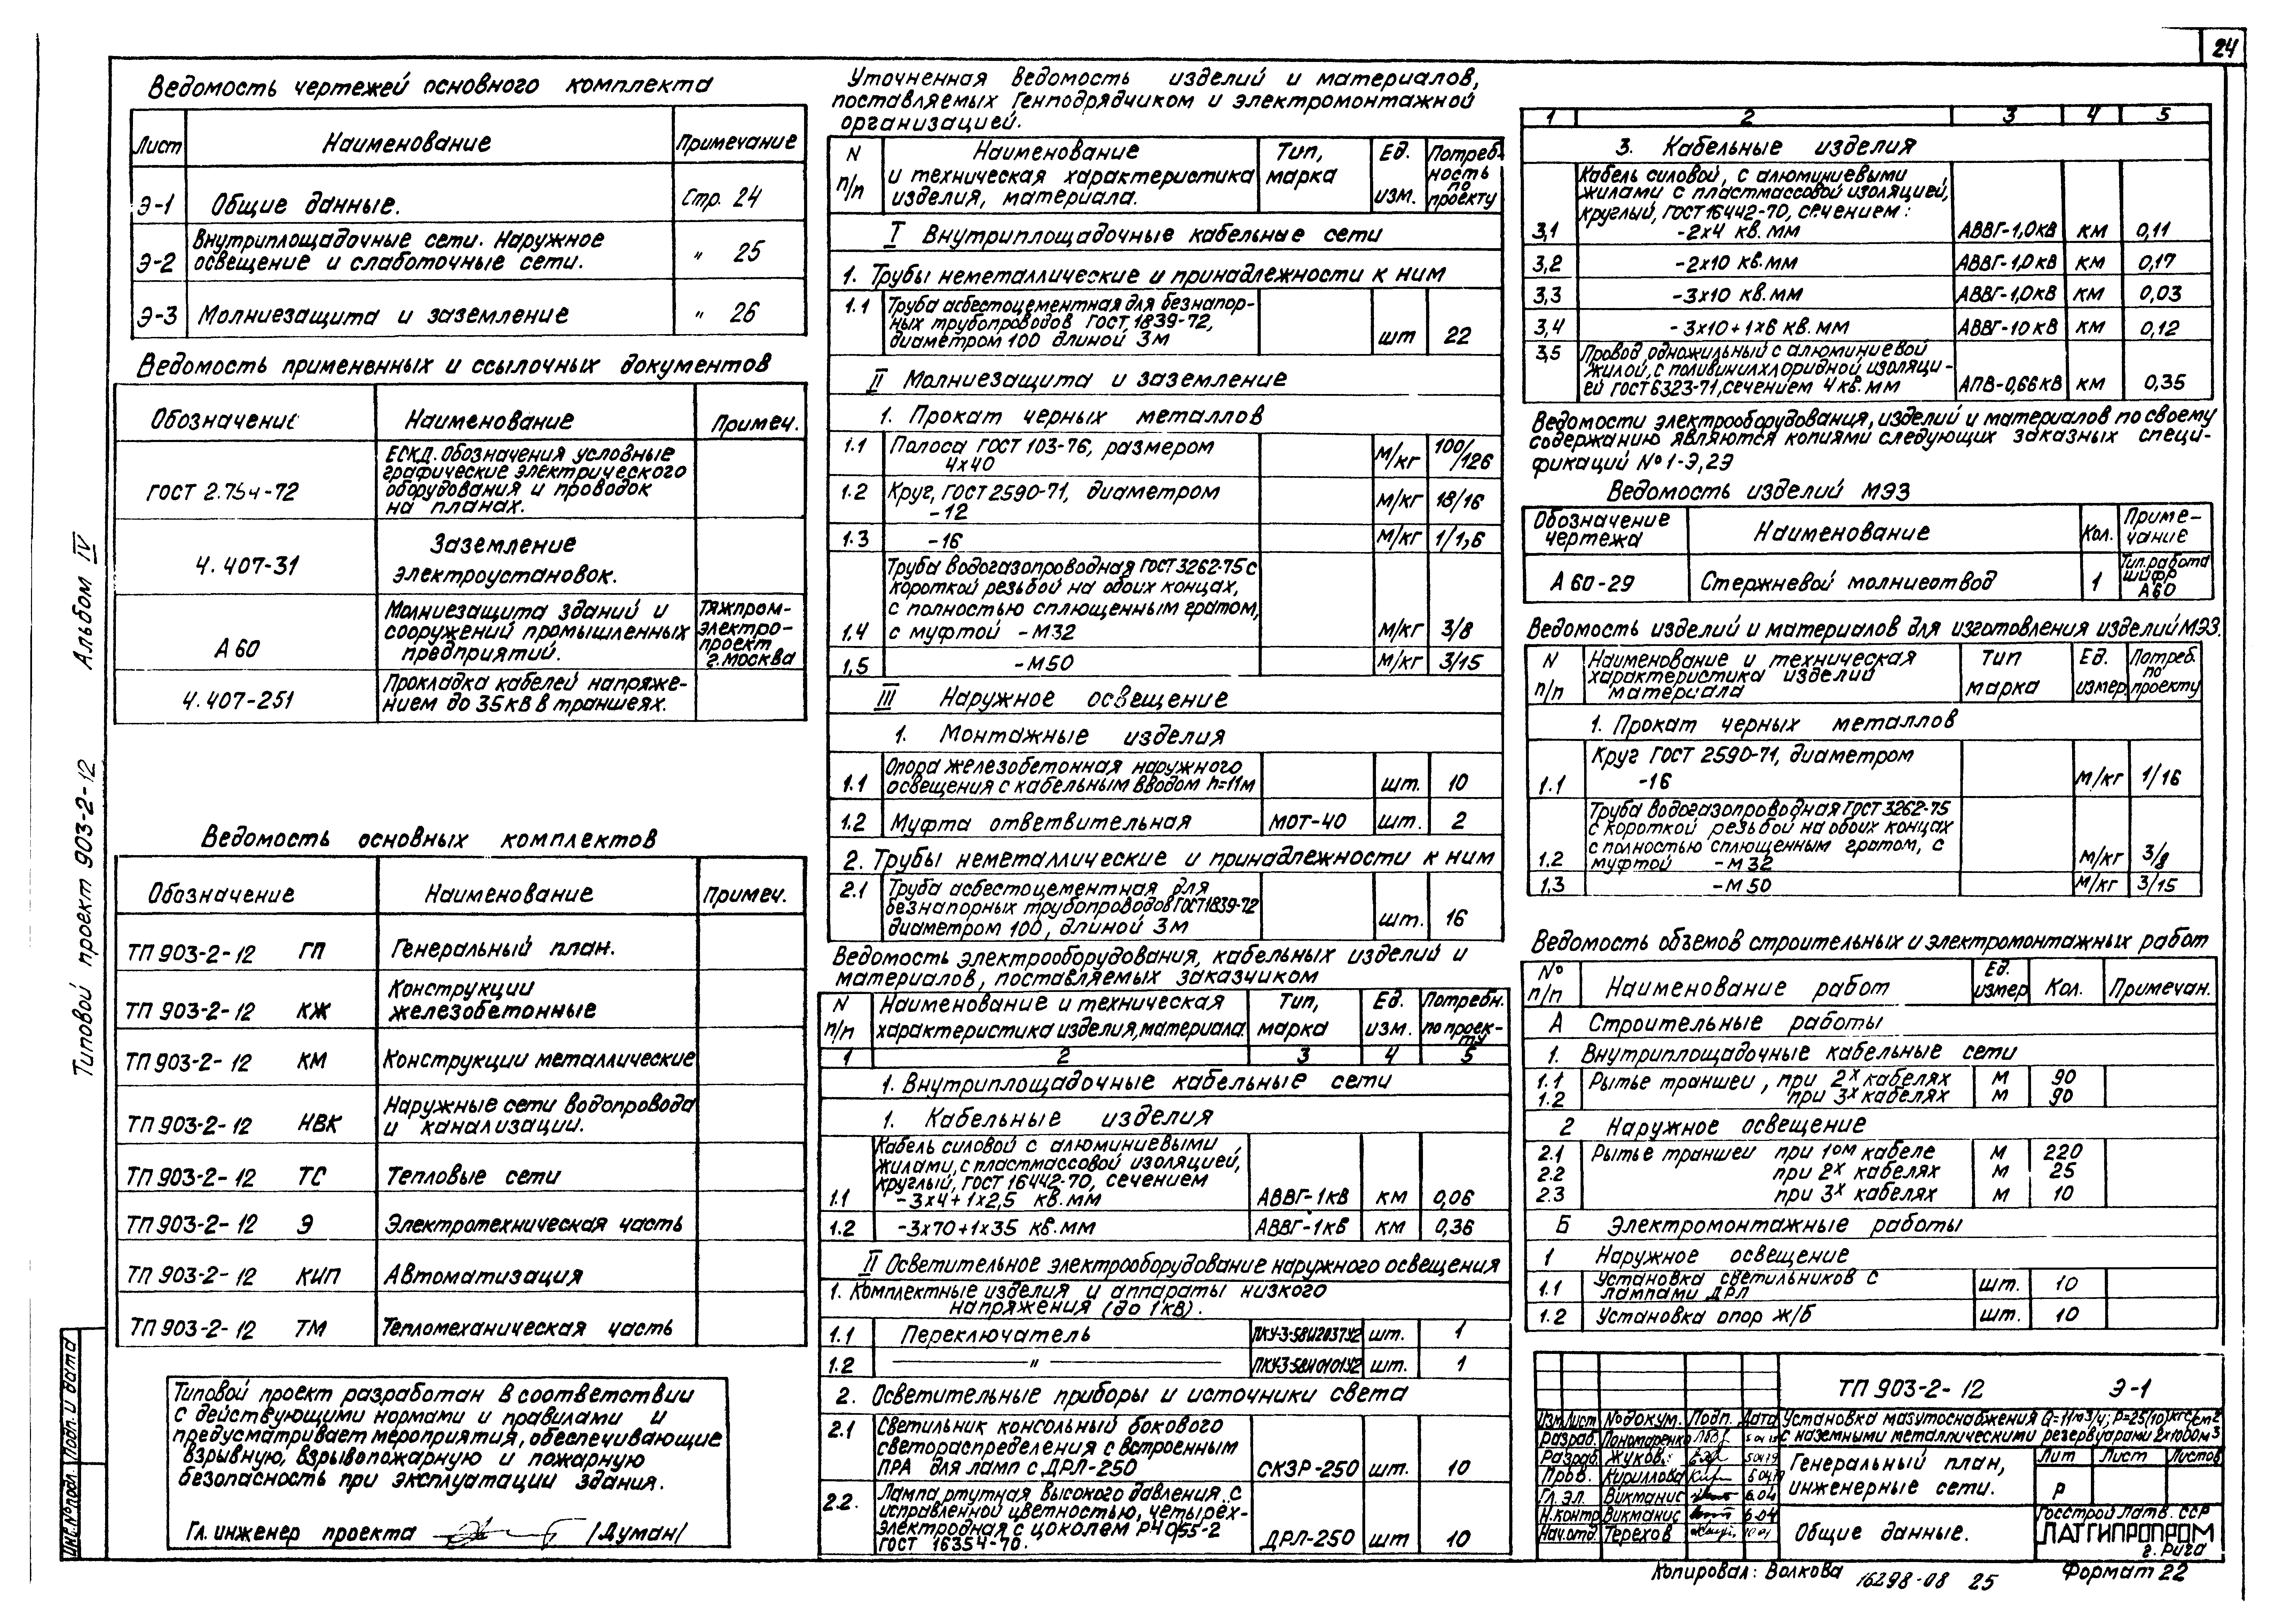 24
Ведомость чертежей основного комплекта
Лист Наименование Примечание
Э-1 Общие данные. Стр. 24
Э-2 Внутриплощадочные сети. Наружное
освещение и слаботочные сети. " 25
Э-3 Молниезащита и заземление " 26
Ведомость примененных и ссылочных документов
Обозначение Наименование Примеч.
ГОСТ 2.754-72 ЕСКД. Обозначения условные
графические электрического
оборудования и проводок
на планах.
4.407-31 Заземление
электроустановок.
А60 Молниезащита зданий и
сооружений промышленных
предприятий.
Тяжпром-
электро-
проект
г. Москва
4.407-251 Прокладка кабелей напряже-
нием до 35кВ в траншеях.
Ведомость основных комплектов
Обозначение Наименование Примеч.
ТП 903-2-12 ГП Генеральный план.
ТП 903-2-12 КЖ Конструкции
железобетонные
ТП 903-2-12 КМ Конструкции металлические
ТП 903-2-12 НВК Наружные сети водопровода
и канализации.
ТП 903-2-12 ТС Тепловые сети
ТП 903-2-12 Э Электротехническая часть
ТП 903-2-12 КИП Автоматизация
ТП 903-2-12 ТМ Тепломеханическая часть
Типовой проект разработан в соответствии
с действующими нормами и правилами и
предусматривает мероприятия, обеспечивающие
взрывную, взрывопожарную и пожарную
безопасность при эксплуатации здания.
Гл. инженер проекта /Думан/
Типовой проект 903-2-12 Альбом IV
Инв.№подл. Подп. и дата
Уточненная ведомость изделий и материалов,
поставляемых Генподрядчиком и электромонтажной
организацией.
N п/п Наименование и техническая характеристика изделия, материала. Тип, марка Ед. изм. Потреб-ность по проекту
I Внутриплощадочные кабельные сети
1. Трубы неметаллические и принадлежности к ним
1.1 Труба асбестоцементная для безнапор-
ных трубопроводов ГОСТ 1839-72,
диаметром 100 длиной 3м шт 22
II Молниезащита и заземление
1. Прокат черных металлов
1.1 Полоса ГОСТ 103-76, размером
4x40 м/кг 100/126
1.2 Круг, ГОСТ 2590-71, диаметром
-12 м/кг 18/16
1.3 -16 м/кг 1/1,6
Труба водогазопроводная ГОСТ 3262-75 с
короткой резьбой на обоих концах,
с полностью сплющенным гратом,
1.4 с муфтой -М32 м/кг 3/8
1,5 -М50 м/кг 3/15
III Наружное освещение
1. Монтажные изделия
1.1 Опора железобетонная наружного
освещения с кабельным вводом h=11м шт. 10
1.2 Муфта ответвительная МОТ-40 шт. 2
2. Трубы неметаллические и принадлежности к ним
2.1 Труба асбестоцементная для
безнапорных трубопроводов ГОСТ1839-72
диаметром 100, длиной 3м шт. 16
Ведомость электрооборудования, кабельных изделий и
материалов, поставляемых заказчиком
N п/п Наименование и техническая характеристика изделия, материала. Тип, марка Ед. изм. Потребн. по проек-ту
1 2 3 4 5
1. Внутриплощадочные кабельные сети
1. Кабельные изделия
Кабель силовой с алюминиевыми
жилами, с пластмассовой изоляцией,
круглый, ГОСТ 16442-70, сечением
1.1 -3х4+1х2,5 кв.мм АВВГ-1кВ км 0,06
1.2 -3х70+1х35 кв.мм АВВГ-1кВ км 0,36
II Осветительное электрооборудование наружного освещения
1. Комплектные изделия и аппараты низкого
напряжения (до 1кВ).
1.1 Переключатель шт. 1
1.2 " шт. 1
2. Осветительные приборы и источники света
2.1 Светильник консольный бокового
светораспределения с встроенным
ПРА для ламп с ДРЛ-250 СКЗР-250 шт. 10
2.2. Лампа ртутная высокого давления, с
исправленной цветностью, четырёх-
электродная с цоколем Р40/55-2
ГОСТ 16354-70. ДРЛ-250 шт 10
1 2 3 4 5
3. Кабельные изделия
Кабель силовой, с алюминиевыми
жилами с пластмассовой изоляцией,
круглый, ГОСТ 16442-70, сечением:
3,1 -2х4 кв.мм АВВГ-1,0кВ км 0,11
3,2 -2х10 кв.мм АВВГ-1,0кВ км 0,17
3,3 -3х10 кв.мм АВВГ-1,0кВ км 0,03
3,4 -3х10+1х6 кв.мм АВВГ-10кВ км 0,12
3,5 Провод, одножильный с алюминиевой
жилой, с поливинилхлоридной изоляци-
ей ГОСТ 6323-71, сечением 4кв.мм АПВ-0,66кВ км 0,35
Ведомости электрооборудования, изделий и материалов по своему
содержанию являются копиями следующих заказных специ-
фикаций №1-Э,2Э
Ведомость изделий МЭЗ
Обозначение чертежа Наименование Кол. Приме-чание
А60-29 Стержневой молниеотвод 1 Тип.работа шифр А60
Ведомость изделий и материалов для изготовления изделий МЭЗ.
N п/п Наименование и техническая характеристика изделий материала Тип марка Ед. измер. Потреб. по проекту
1. Прокат черных металлов
Круг ГОСТ 2590-71, диаметром
1.1 -16 м/кг 1/16
Труба водогазопроводная ГОСТ 3262-75
с короткой резьбой на обоих концах
с полностью сплющенным гратом, с
1.2 муфтой -М32 м/кг 3/8
1,3 -М50 м/кг 3/15
Ведомость объемов строительных и электромонтажных работ
№ п/п Наименование работ Ед. измер Кол. Примечан.
А Строительные работы
1. Внутриплощадочные кабельные сети
1.1 Рытье траншеи, при 2х кабелях м 90
1.2 при 3х кабелях м 90
2 Наружное освещение
2.1 Рытье траншеи при 1ом кабеле м 220
2.2 при 2х кабелях м 25
2.3 при 3х кабелях м 10
Б Электромонтажные работы
1 Наружное освещение
1.1 Установка светильников с
лампами ДРЛ шт. 10
1.2 Установка опор ж/б шт. 10
ТП 903-2-12 Э-1
Изм Лист №докум. Подп. Дата
Разраб. Пономаренко
Разраб. Жуков
Пров. Кириллова
Гл. эл. Викманис 6.04
Н.контр Викманис 6.04
Нач.отд. Терехов
Установка мазутоснабжения Q=11м3/ч; P=25(10)кгс/см2
с наземными металлическими резервуарами 2х100м3
Генеральный план,
инженерные сети.
Лит Лист Листов
Р
Общие данные.
Госстрой Латв. ССР
ЛАТГИПРОПРОМ
г. Рига
Копировал: Волкова 16298-08 25 Формат 22